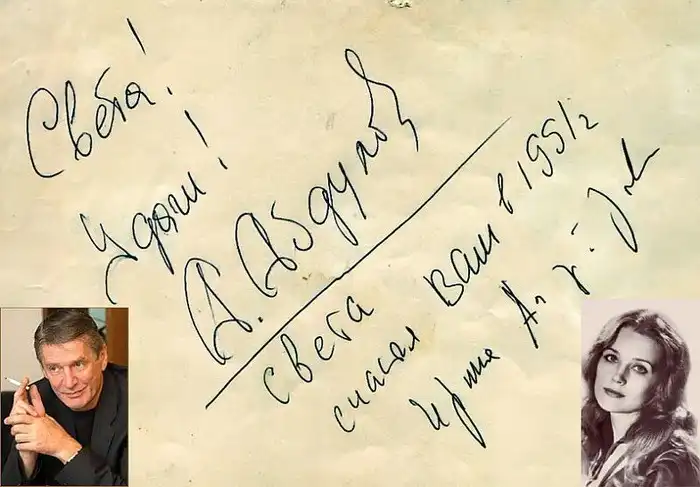 Света!
Удачи!
А. Абдулов
Света
счастья Вам в 1995 г
Ирина